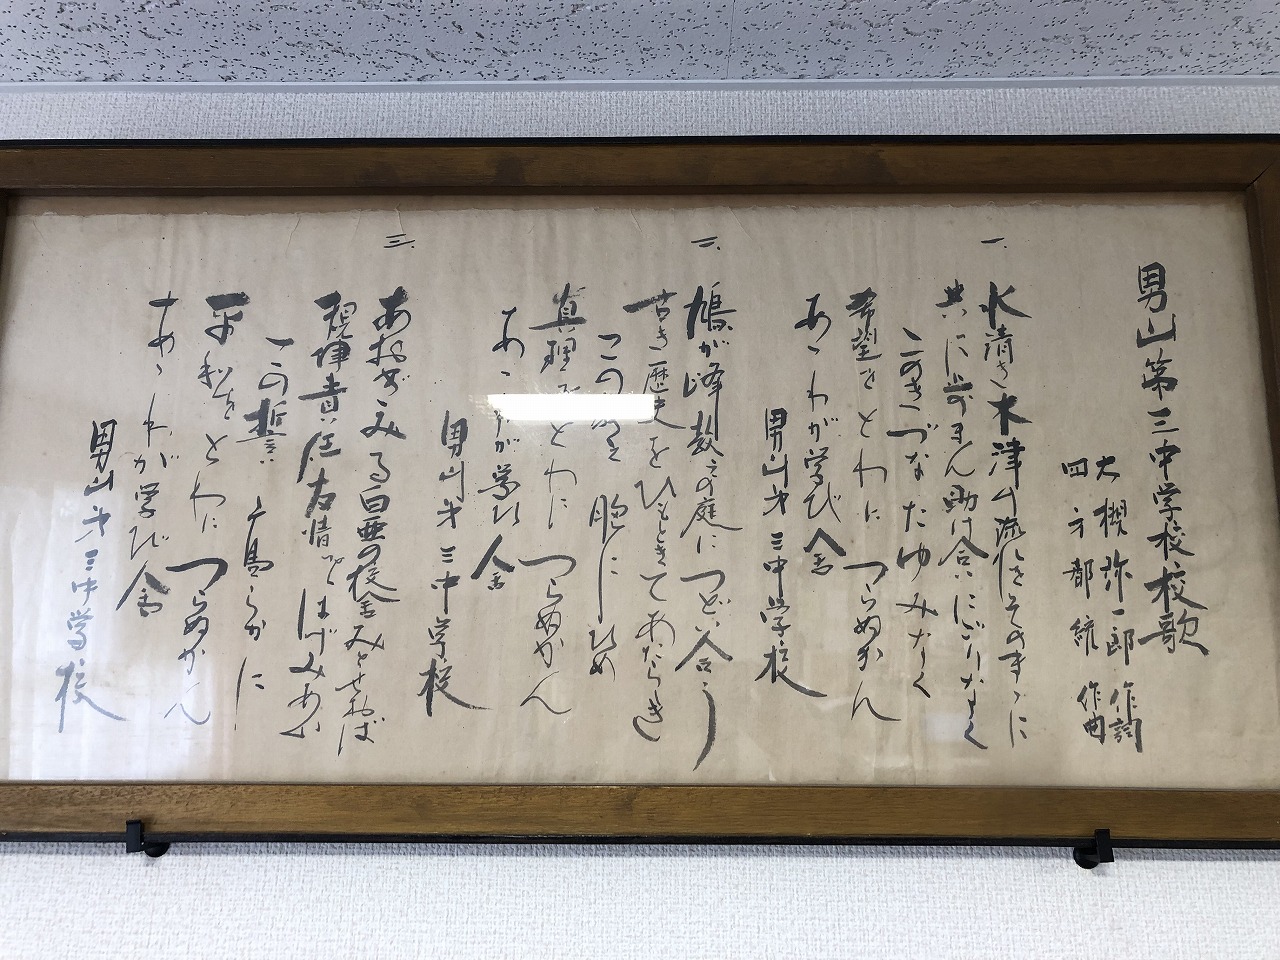 男山第三中学校校歌
大槻弥一郎 作詞
四方都統 作曲
一、
水清き木津の流れをそのまゝに
共に歩まん助け合いにごりなく
このきづなたゆみなく
希望をとわにつらぬかん
あゝわが学び舎
男山第三中学校
二、
鳩が峰教えの庭につどい合う
古き歴史をひもときてあたらき
この 胸にひめ
真理をとわにつらぬかん
あゝわが学び舎
男山第三中学校
三、
あおぎみる白亜の校舎みどせねば
規律責任友情とはげみあい
この誓い 高らかに
平和をとわにつらぬかん
あゝわが学び舎
男山第三中学校